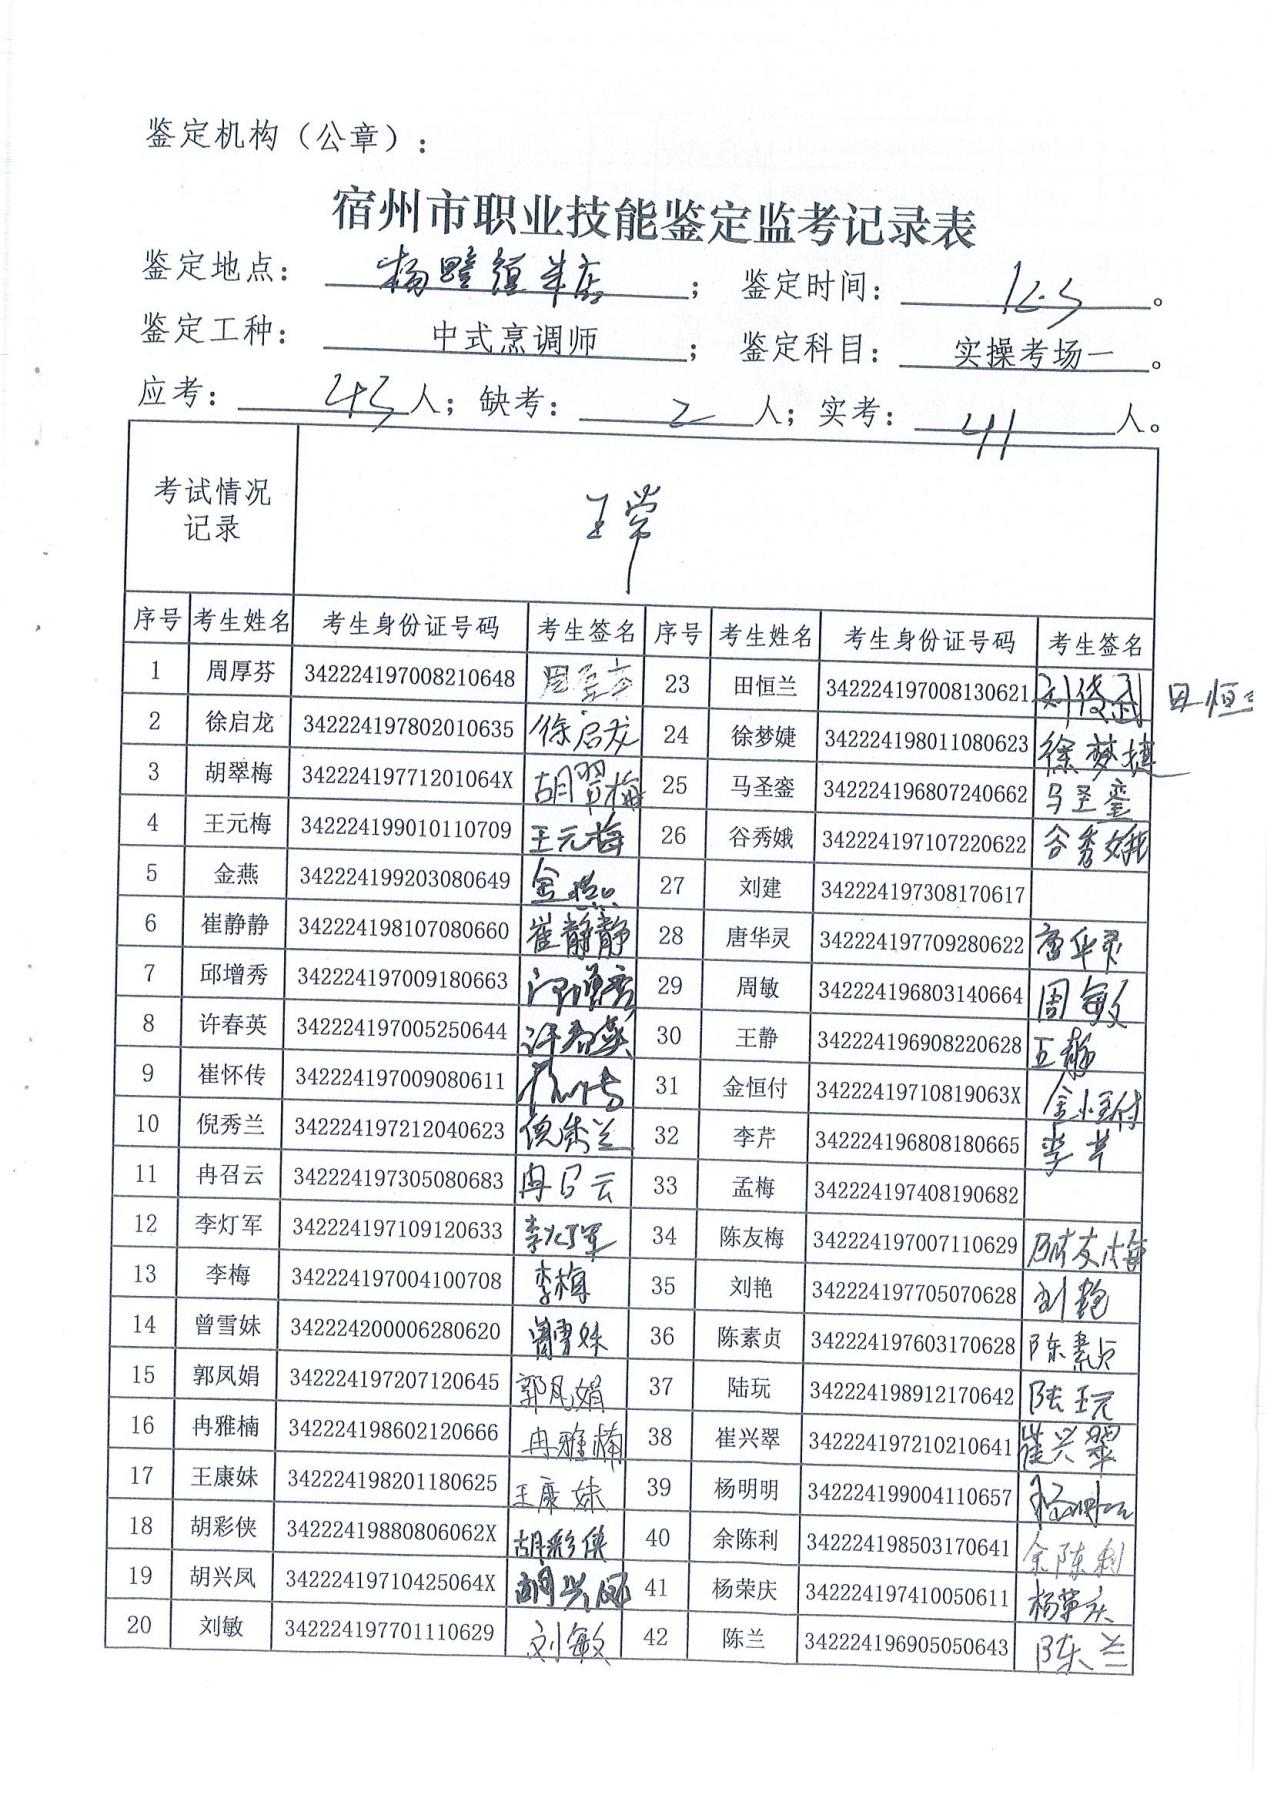 鉴定机构（公章）：
宿州市职业技能鉴定监考记录表
鉴定地点： 杨疃 ； 鉴定时间： 12.3 。
鉴定工种： 中式烹调师 ； 鉴定科目： 实操考场一 。
应考： 43 人；缺考： 2 人；实考： 41 人。
考试情况记录 正常
序号 考生姓名 考生身份证号码 考生签名 序号 考生姓名 考生身份证号码 考生签名
1 周厚芬 342224197008210648 23 田恒兰 342224197008130621 刘俊武 田恒兰
2 徐启龙 342224197802010635 徐启龙 24 徐梦婕 342224198011080623 徐梦捷
3 胡翠梅 34222419771201064X 胡翠梅 25 马圣銮 342224196807240662 马圣銮
4 王元梅 342224199010110709 王元梅 26 谷秀娥 342224197107220622 谷秀娥
5 金燕 342224199203080649 金燕 27 刘建 342224197308170617
6 崔静静 342224198107080660 崔静静 28 唐华灵 342224197709280622 唐华灵
7 邱增秀 342224197009180663 邱增秀 29 周敏 342224196803140664 周敏
8 许春英 342224197005250644 许春英 30 王静 342224196908220628 王静
9 崔怀传 342224197009080611 崔怀传 31 金恒付 34222419710819063X 金恒付
10 倪秀兰 342224197212040623 倪秀兰 32 李芹 342224196808180665 李芹
11 冉召云 342224197305080683 冉召云 33 孟梅 342224197408190682
12 李灯军 342224197109120633 李灯军 34 陈友梅 342224197007110629 陈友梅
13 李梅 342224197004100708 李梅 35 刘艳 342224197705070628 刘艳
14 曾雪妹 342224200006280620 曾雪妹 36 陈素贞 342224197603170628 陈素贞
15 郭凤娟 342224197207120645 郭凤娟 37 陆玩 342224198912170642 陆玩
16 冉雅楠 342224198602120666 冉雅楠 38 崔兴翠 342224197210210641 崔兴翠
17 王康妹 342224198201180625 王康妹 39 杨明明 342224199004110657 杨明明
18 胡彩侠 34222419880806062X 胡彩侠 40 余陈利 342224198503170641 余陈利
19 胡兴凤 34222419710425064X 胡兴凤 41 杨荣庆 342224197410050611 杨荣庆
20 刘敏 342224197701110629 刘敏 42 陈兰 342224196905050643 陈兰